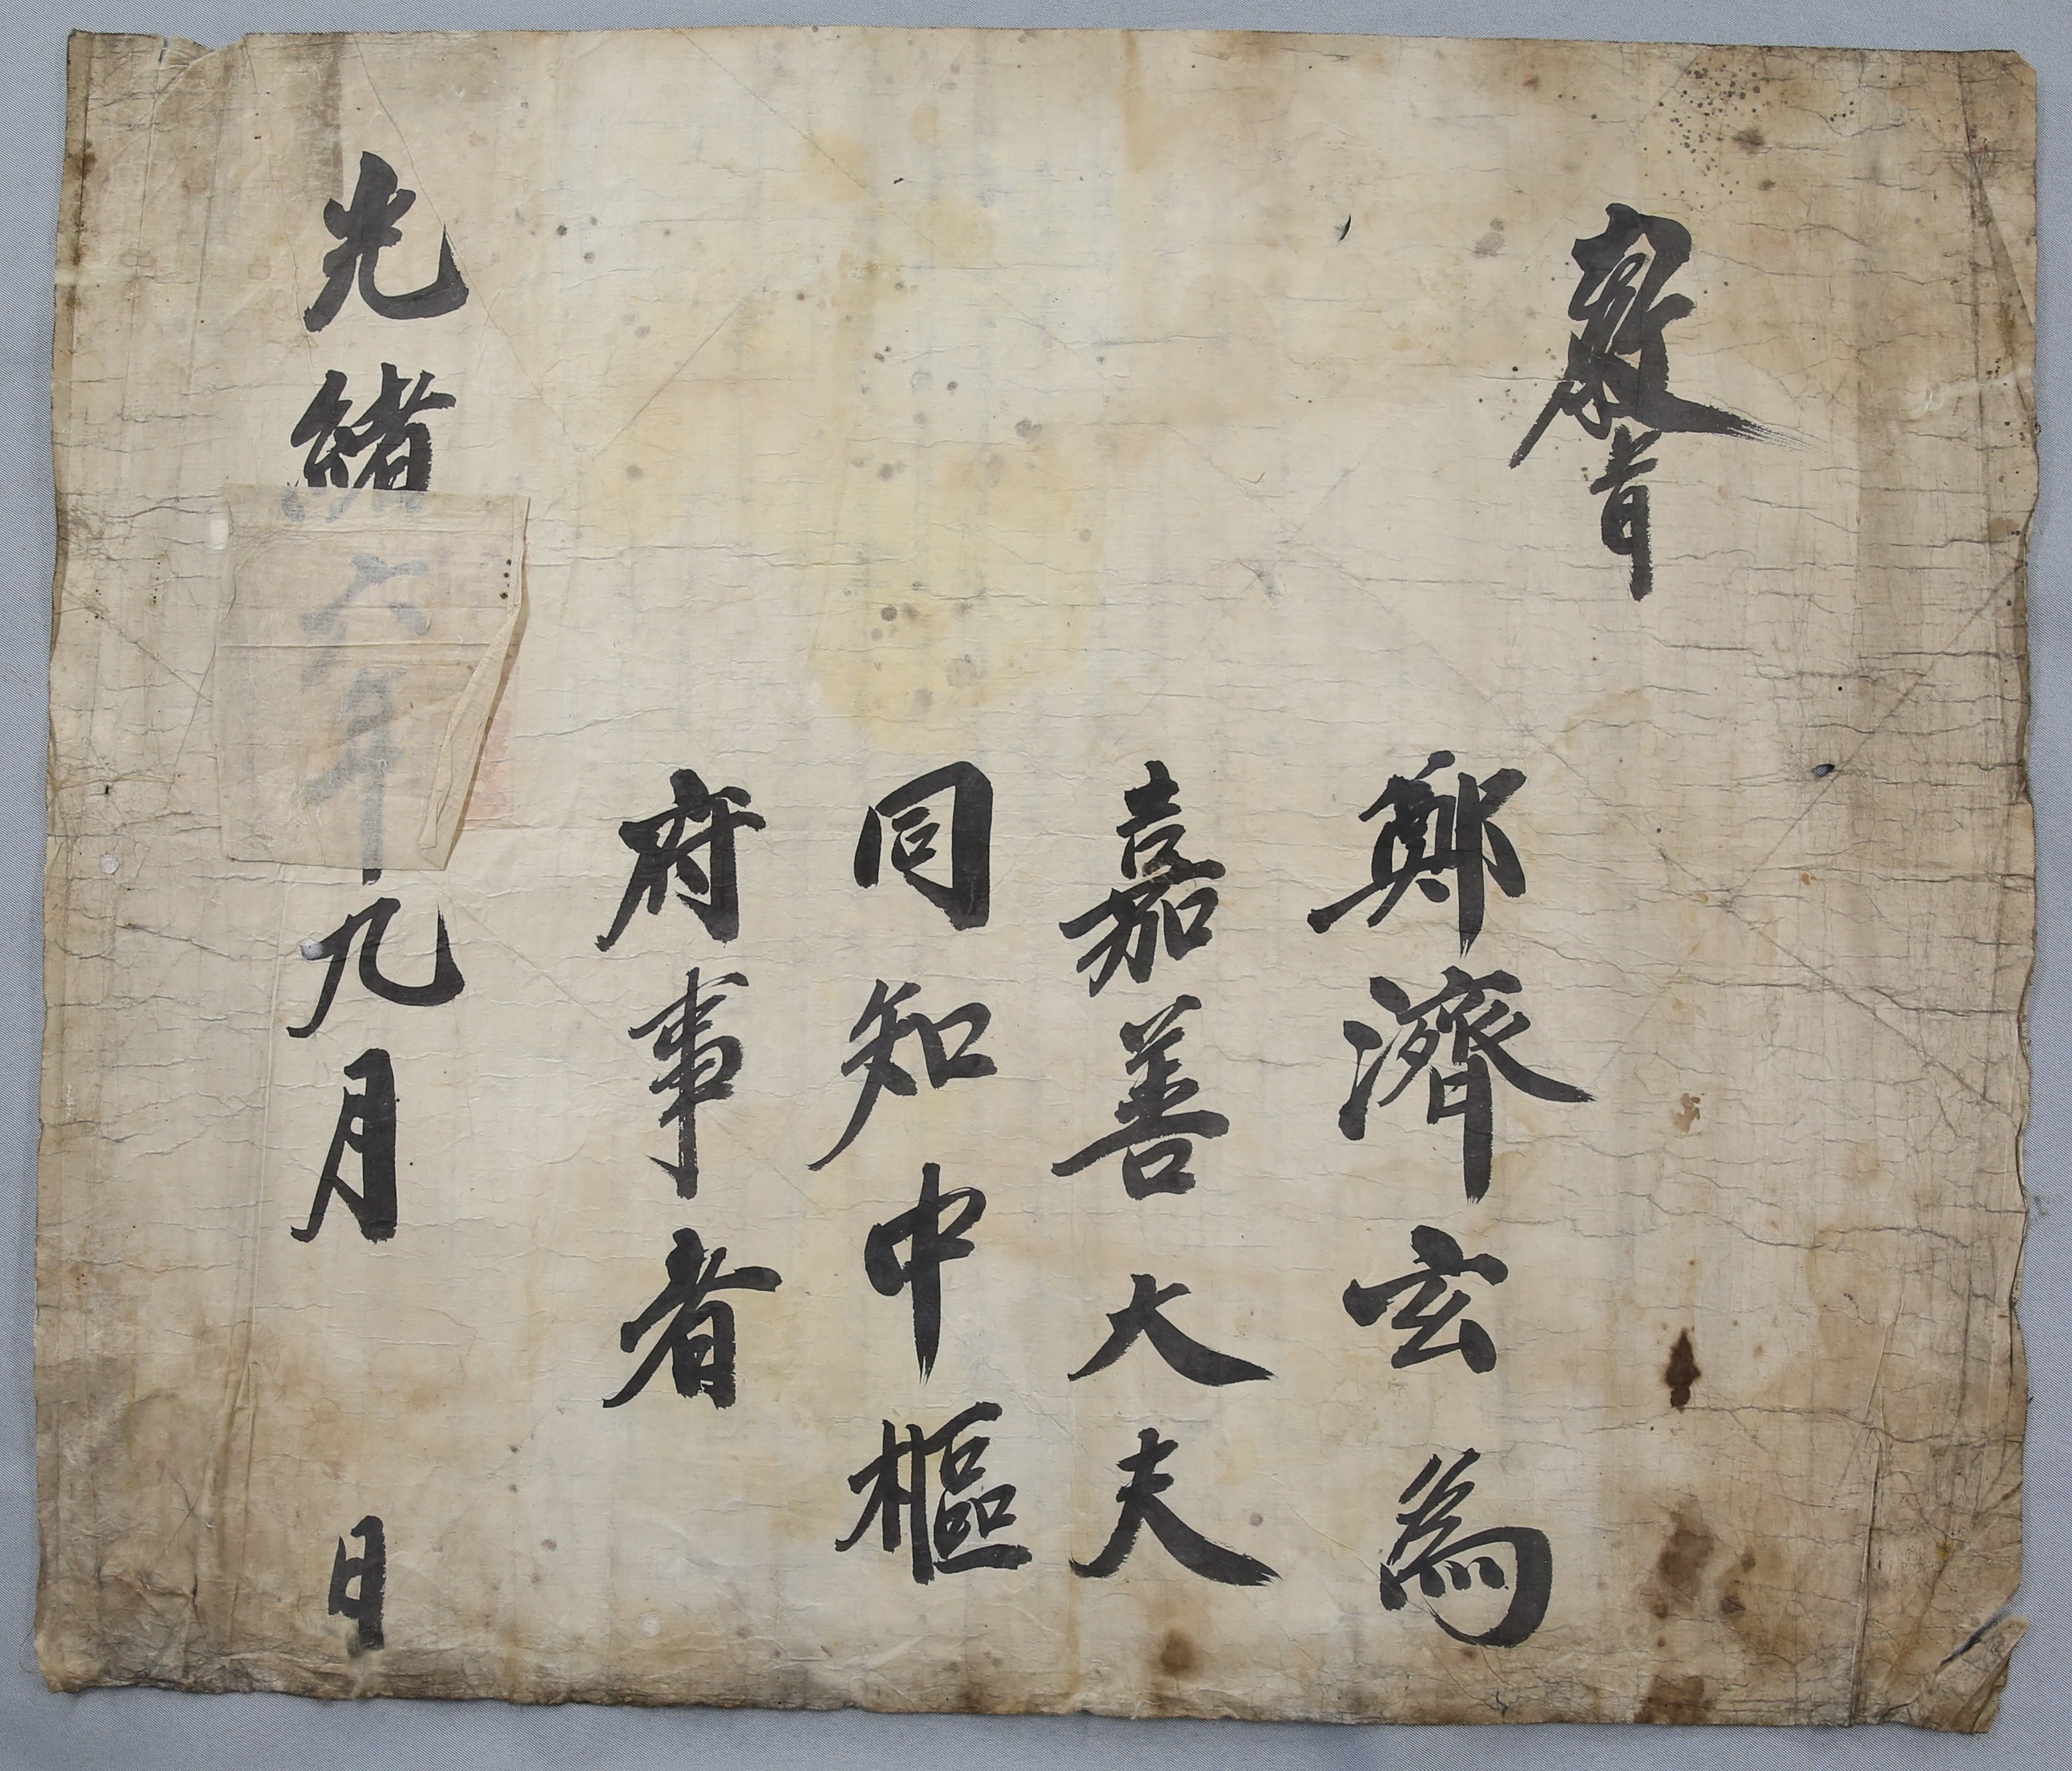 敎旨
鄭濟玄爲
嘉善大夫
同知中樞
府事者
光緖六年九月　日